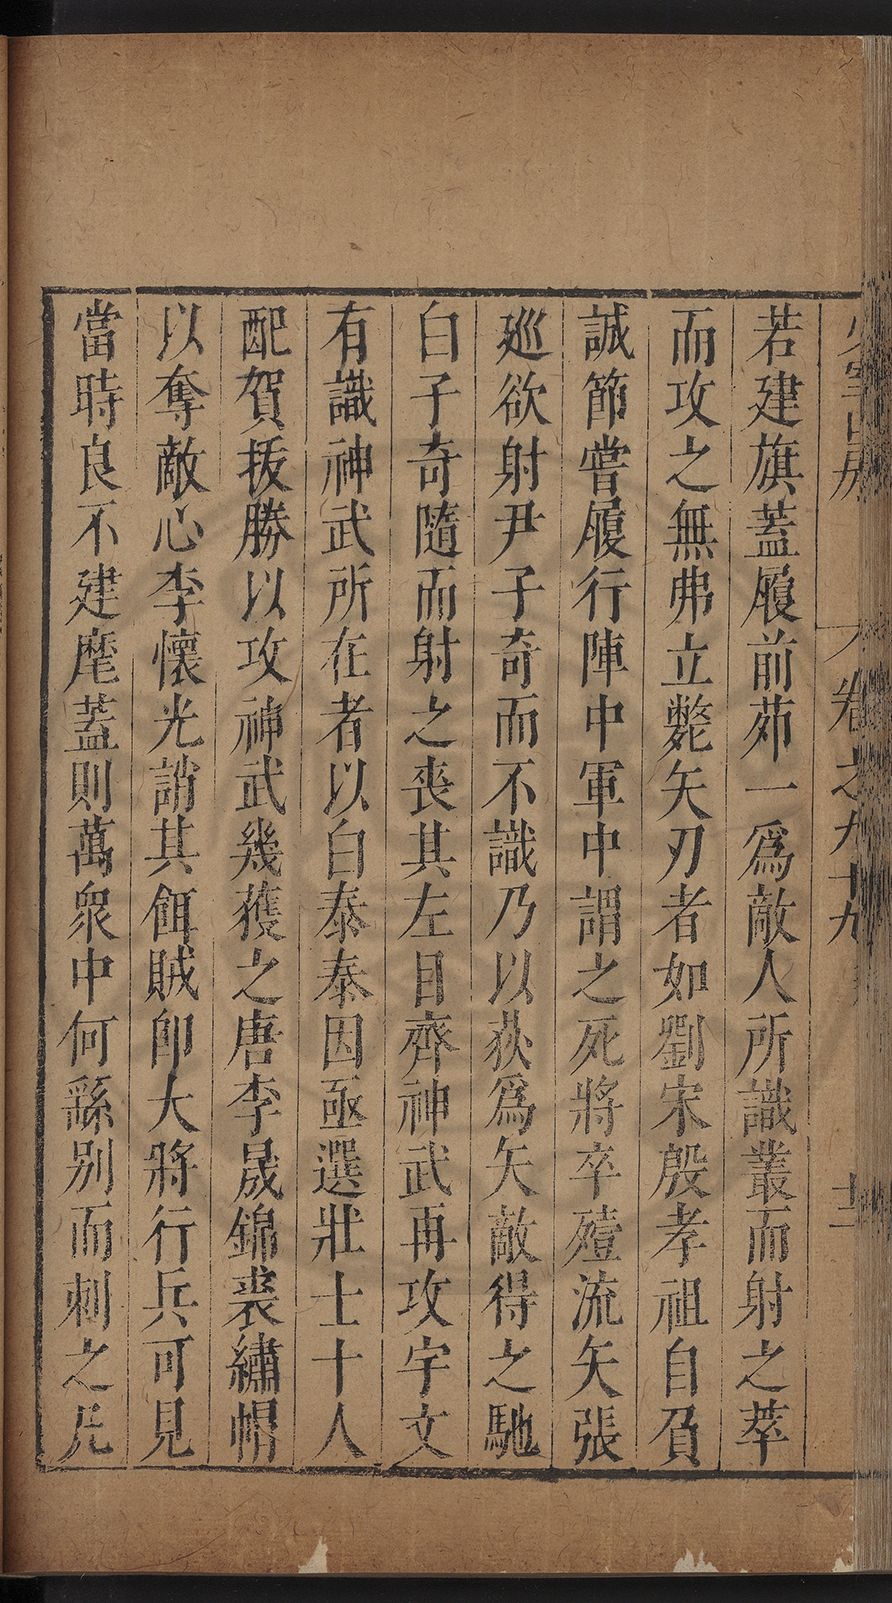 若建旗蓋履前茆一爲敵人所識叢而射之萃
而攻之無弗立斃矢刃者如劉宋殷孝祖自負
誠節嘗履行陣中軍中謂之死將卒殪流矢張
巡欲射尹子奇而不識乃以荻爲矢敵得之馳
白子奇隨而射之喪其左目齊神武再攻宇文
有識神武所在者以白泰泰因亟選壯士十人
配賀拔勝以攻神武幾獲之唐李晟錦裘繡帽
以奪敵心李懷光誚其餌賊卽大將行兵可見
當時良不建麾蓋則萬衆中何繇别而刺之凡
卷之九十九